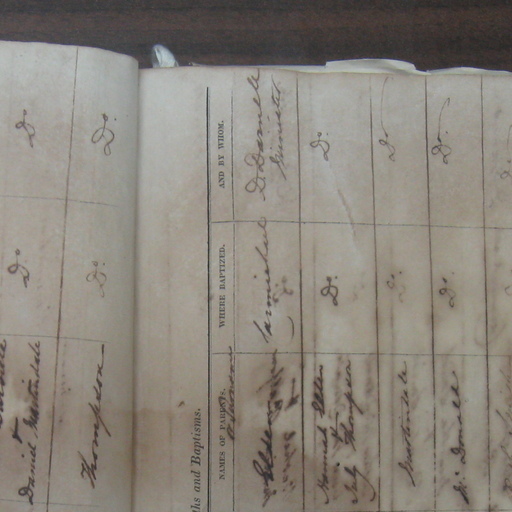 &
Daniel Martindale Do. Do.
Thompson Do. Do.
ths and Baptisms.
NAMES OF PARENTS. WHERE BAPTIZED. AND BY WHOM.
or Surname
Elder Carmichael D. Darnelle
Minister
Hannah Elder Do. Do.
&
July Thompson
Martindale Do. Do.
Mc Donald Do. Do.